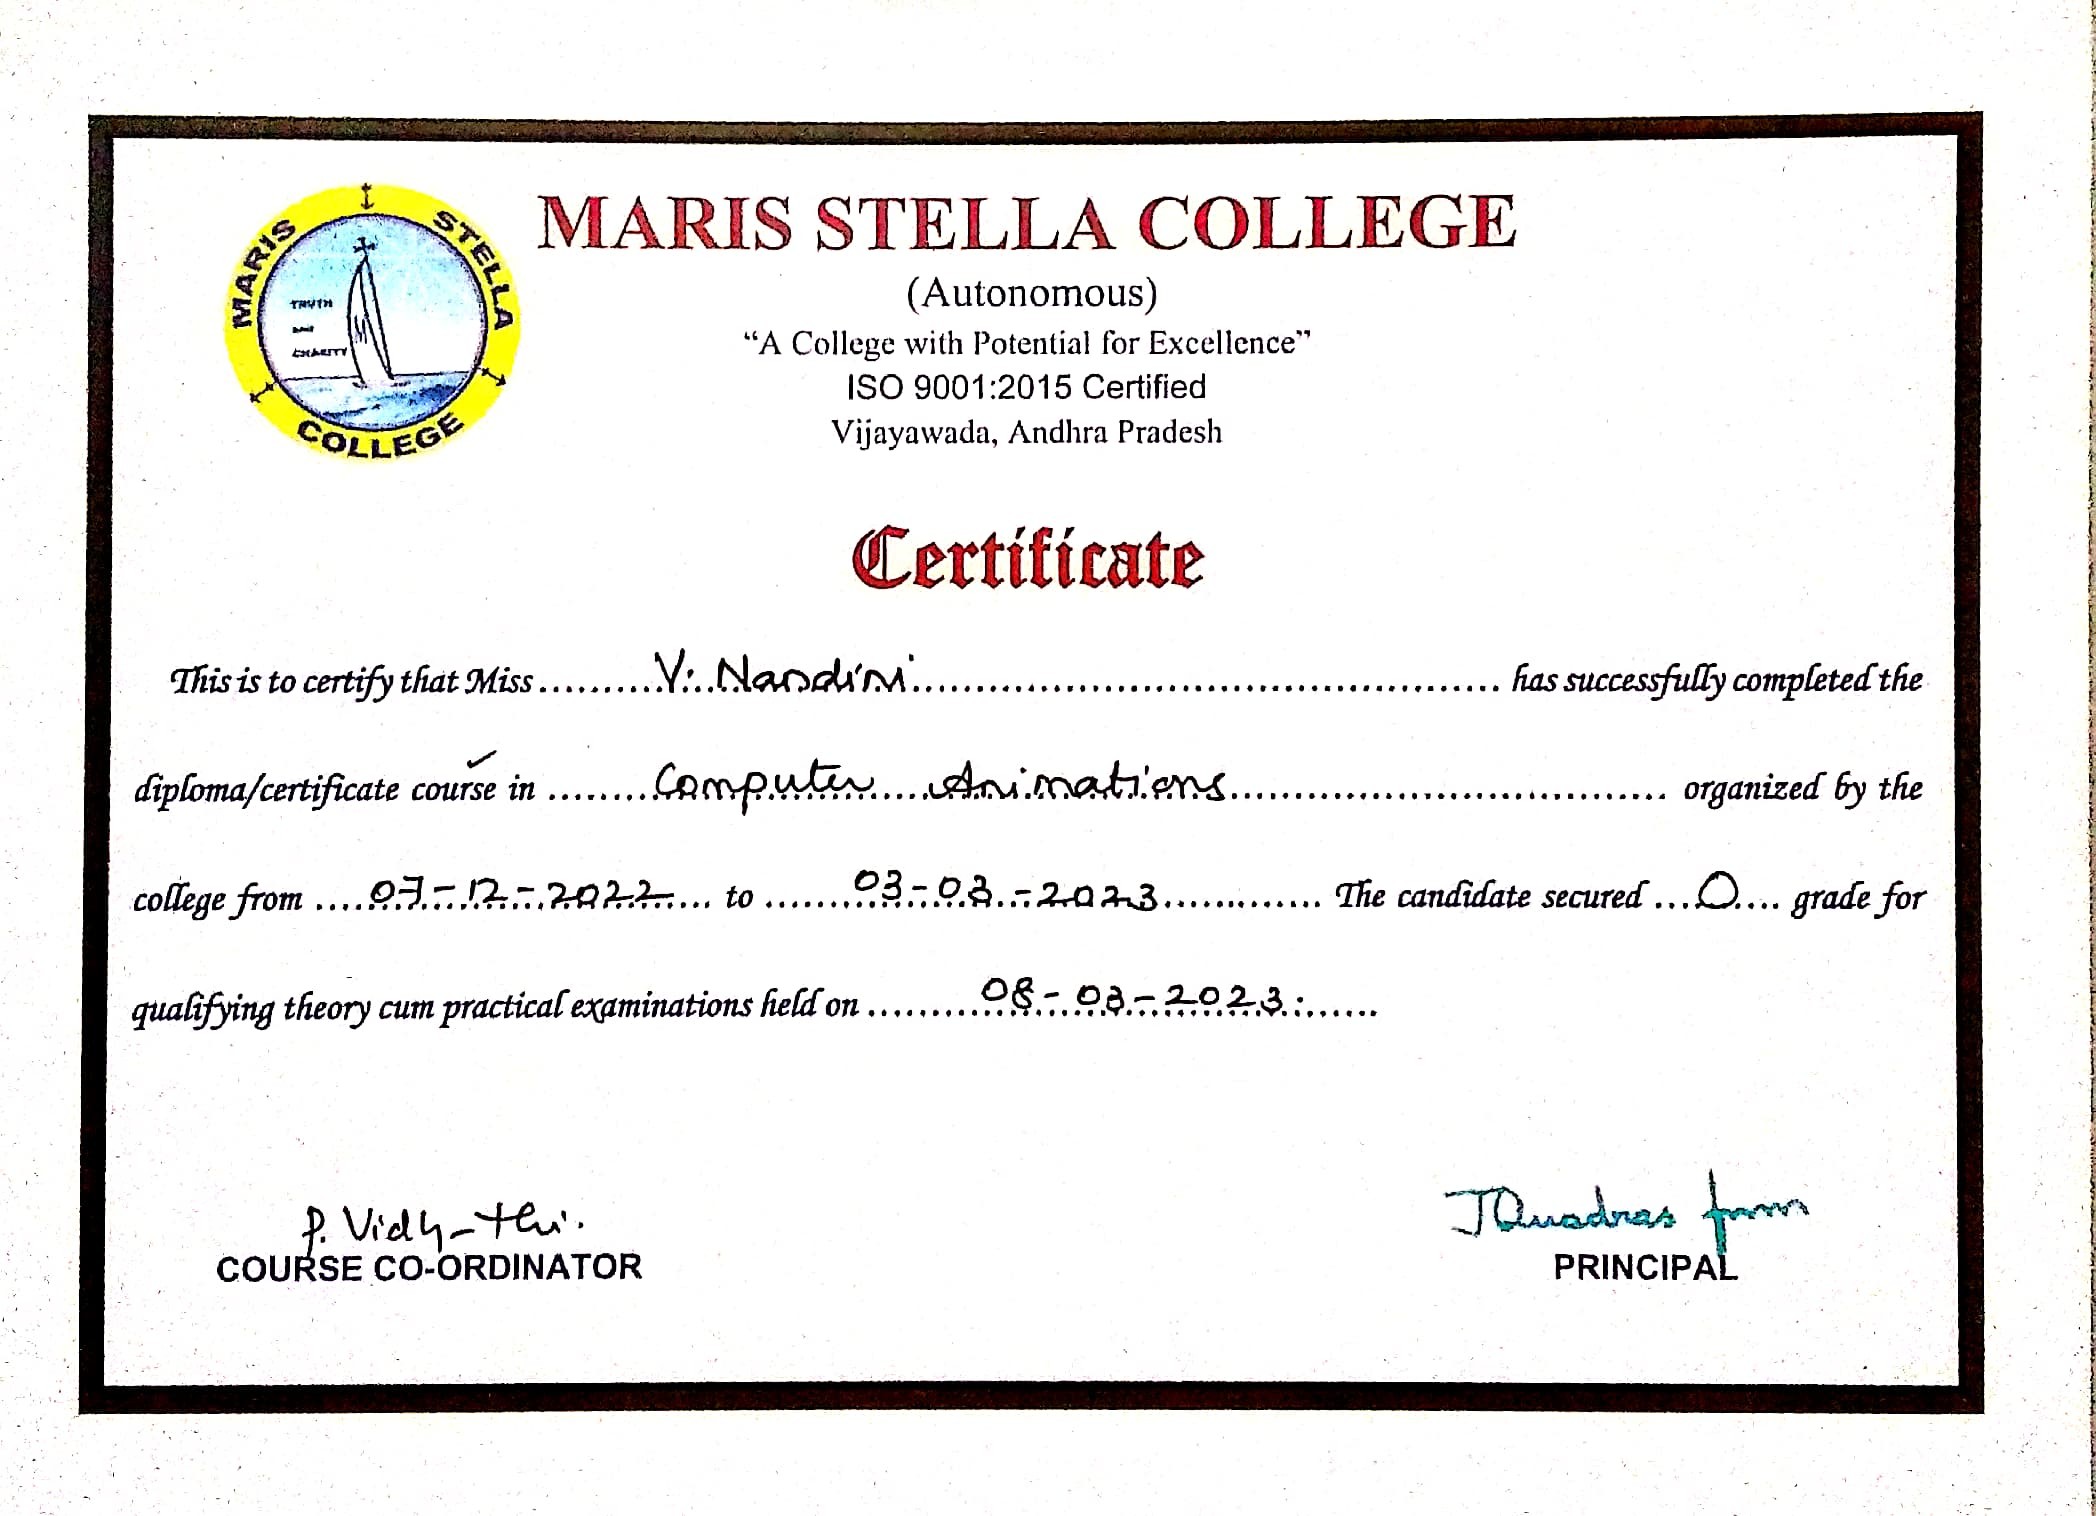 MARIS STELLA COLLEGE
TRUTH
AND
CHARITY
MARIS STELLA COLLEGE
(Autonomous)
“A College with Potential for Excellence”
ISO 9001:2015 Certified
Vijayawada, Andhra Pradesh
Certificate
This is to certify that Miss..........V. Nandini.......... has successfully completed the
diploma/certificate course in ........Computer Animations.......... organized by the
college from ....07-12-2022.... to ........03-03-2023............. The candidate secured ...O.... grade for
qualifying theory cum practical examinations held on ..........08-03-2023.......
P. Vidy-thi.
COURSE CO-ORDINATOR
JQuadras fmm
PRINCIPAL